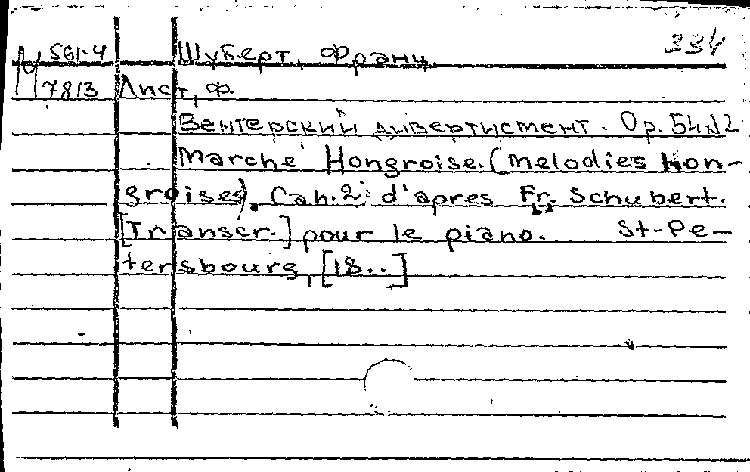 М 561-4 Шуберт, Франц 334
7813 Лист, Ф.
Венгерский дивертисмент. Op. 54 №2
Marche Hongroise. (Melodies Hon-
groises). Cah. 2. d'apres Fr. Schubert.
[Transcr.] pour le piano. St-Pe-
tersbourg, [18..]